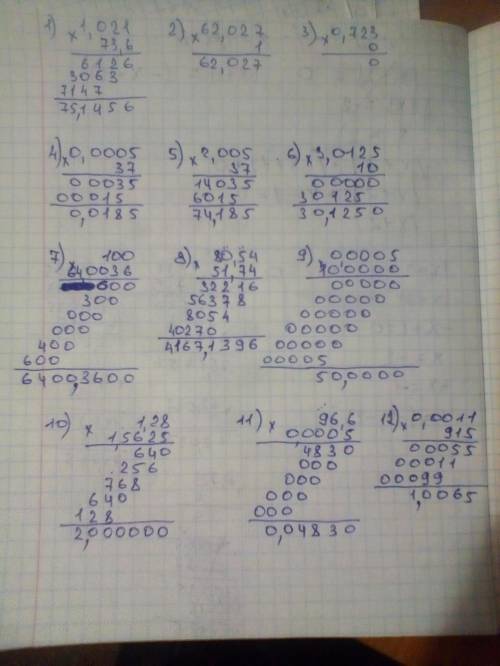 1) × 1,021
73,6
6126
3063
7147
75,1456
2) × 62,027
1
62,027
3) × 0,723
0
0
4) × 0,0005
37
00035
00015
0,0185
5) × 2,005
37
14035
6015
74,185
6) × 3,0125
10
00000
30125
30,1250
7) × 100
640036
600
300
000
000
400
600
6400,3600
8) × 80,54
51,74
32216
56378
8054
40270
4167,1396
9) × 00005
00000
00000
00000
00000
00000
00005
50,0000
10) × 1,28
1,5625
640
256
768
640
128
2,000000
11) × 96,6
0,0005
4830
000
000
000
000
0,04830
12) × 0,0011
915
00055
00011
00099
1,0065